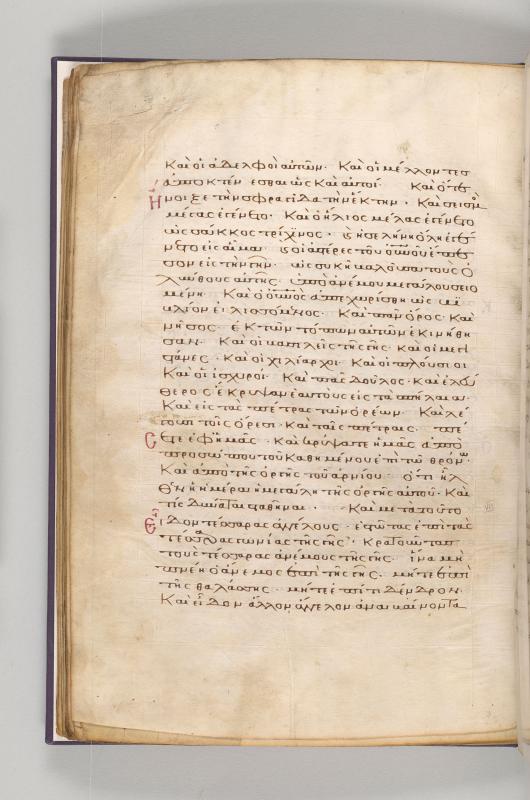 Καὶ οἱ ἀδελφοὶ αὐτῶν· Καὶ οἱ μέλλοντες
ἀποκτένεσθαι ὡς Καὶ αὐτοί· Καὶ ὅτε
ἤνοιξε τὴν σφραγίδα τὴν ἕκτην· Καὶ σεισμὸς
μέγας ἐγένετο· Καὶ ὁ ἥλιος μέλας ἐγένετο
ὡς σάκκος τρίχινος· Καὶ ἡ σελήνη ὅλη ἐγέ
νετο εἰς αἷμα· Καὶ οἱ ἀστέρες τοῦ οὐνοῦ ἔπε
σον εἰς τὴν γῆν· ὡς συκῆ βαλοῦσα τοὺς ὀ
λύνθους αὐτῆς· ὑπὸ ἀνέμου μεγάλου σειο
μένη· Καὶ ὁ οὐνὸς ἀπεχωρίσθη ὡς βι
βλίον ἑλισσόμενος· Καὶ πᾶν ὄρος· Καὶ
νῆσος· ἐκ τῶν τόπων αὐτῶν ἐκινήθη
σαν· Καὶ οἱ βασιλεῖς τῆς γῆς· Καὶ οἱ μεγι
στάνες· Καὶ οἱ χιλίαρχοι· Καὶ οἱ πλούσιοι
Καὶ οἱ ἰσχυροί· Καὶ πᾶς Δοῦλος· Καὶ ἐλεύ
θερος· ἔκρυψαν ἑαυτοὺς εἰς τὰ σπήλαια·
Καὶ εἰς τὰς πέτρας τῶν ὀρέων· Καὶ λέ
γουσι τοῖς ὄρεσι· Καὶ ταῖς πέτραις· πέ
σετε ἐφ' ἡμᾶς· Καὶ κρύψατε ἡμᾶς ἀπὸ
προσώπου τοῦ Καθημένου ἐπὶ τῷ θρόνῳ·
Καὶ ἀπὸ τῆς ὀργῆς τοῦ ἀρνίου· ὅτι ἦλ
θεν ἡ ἡμέρα ἡ μεγάλη τῆς ὀργῆς αὐτοῦ· Καὶ
τίς Δύναται σταθῆναι· Καὶ μετὰ τοῦτο
Εἶδον τέσσαρας ἀγγέλους· ἑστῶτας ἐπὶ τὰς
τέσσαρας γωνίας τῆς γῆς· Κρατοῦντας
τοὺς τέσσαρας ἀνέμους τῆς γῆς· ἵνα μὴ
πνέῃ ὁ ἄνεμος ἐπὶ τῆς γῆς· μήτε ἐπὶ
τῆς θαλάσσης· μήτε ἐπί τι Δένδρον·
Καὶ εἶδον ἄλλον ἄγγελον ἀναβαίνοντα